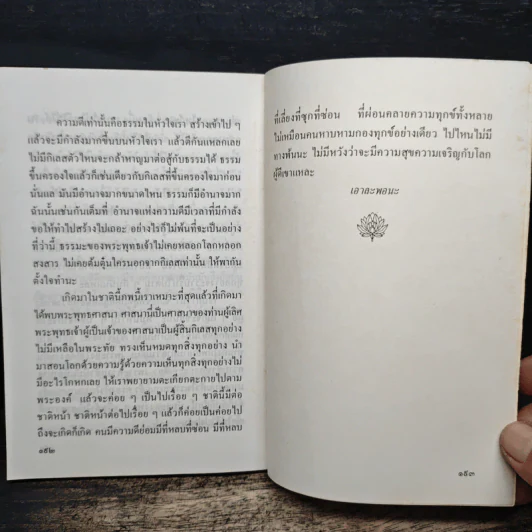 ความดีเท่านั้นคือธรรมในหัวใจเรา สร้างเข้าไป ๆ
แล้วจะมีกำลังมากขึ้นบนหัวใจเรา แล้วตีกันแหลกเลย
ไม่มีกิเลสตัวไหนจะกล้าหาญมาต่อสู้กับธรรมได้ ธรรม
ขึ้นครองใจแล้วก็เช่นเดียวกับกิเลสที่ขึ้นครองใจมาก่อน
นั่นแล มันมีอำนาจมากขนาดไหน ธรรมก็มีอำนาจมาก
ฉันนั้นเช่นกันเต็มที่ อำนาจแห่งความดีมีเวลาที่มีกำลัง
ขอให้ทำไปสร้างไปเถอะ อย่างไรก็ไม่พ้นที่จะเป็นอย่าง
ที่ว่านี้ ธรรมะของพระพุทธเจ้าไม่เคยหลอกโลกหลอก
สงสาร ไม่เคยต้มตุ๋นใครนอกจากกิเลสเท่านั้น ให้พากัน
ตั้งใจทำนะ
เกิดมาในชาตินี้ภพนี้เราเหมาะที่สุดแล้วที่เกิดมา
ได้พบพระพุทธศาสนา ศาสนานี้เป็นศาสนาของท่านผู้เลิศ
พระพุทธเจ้าผู้เป็นเจ้าของศาสนาเป็นผู้สิ้นกิเลสทุกอย่าง
ไม่มีเหลือในพระทัย ทรงเห็นหมดทุกสิ่งทุกอย่าง นำ
มาสอนโลกด้วยความรู้ด้วยความเห็นทุกสิ่งทุกอย่างไม่
มีอะไรโกหกเลย ให้เราพยายามตะเกียกตะกายไปตาม
พระองค์ แล้วจะค่อย ๆ เป็นไปเรื่อย ๆ ชาตินี้มีต่อ
ชาติหน้า ชาติหน้าต่อไปเรื่อย ๆ แล้วก็ค่อยเป็นค่อยไป
ถึงจะเกิดก็เกิด คนมีความดีย่อมมีที่หลบที่ซ่อน มีที่หลบ
๑๕๒
ที่เลี่ยงที่ซุกที่ซ่อน ที่ผ่อนคลายความทุกข์ทั้งหลาย
ไม่เหมือนคนหาบหามกองทุกข์อย่างเดียว ไปไหนไม่มี
ทางพ้นนะ ไม่มีหวังว่าจะมีความสุขความเจริญกับโลก
ผู้ดีเขาแหละ
เอาละพอนะ
๑๕๓